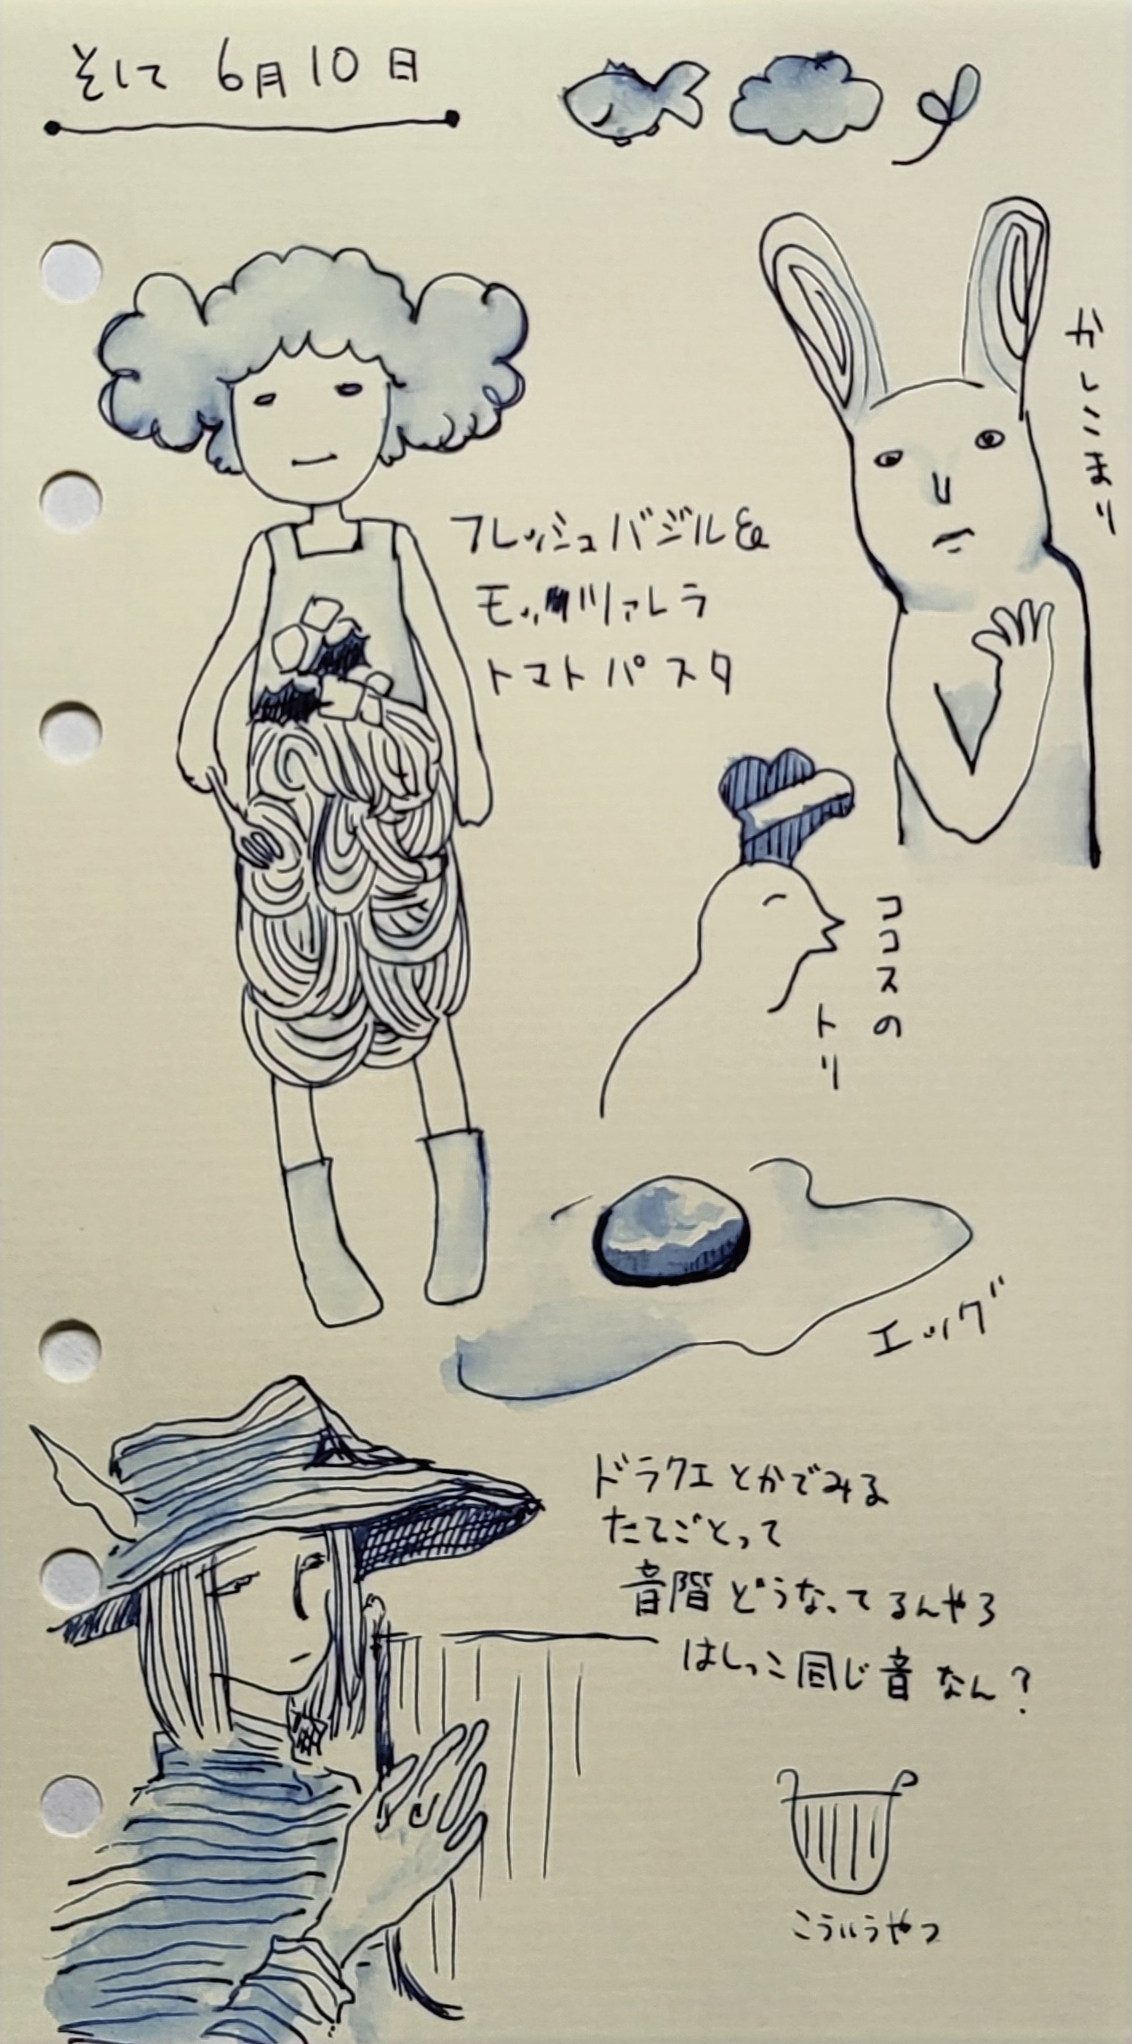 そして 6月10日
かしこまり
フレッシュバジル&
モッツァレラ
トマトパスタ
ココスの
トリ
エッグ
ドラクエとかでみる
たてごとって
音階どうなってるんやろ
はしっこ同じ音なん?
こういうやつ